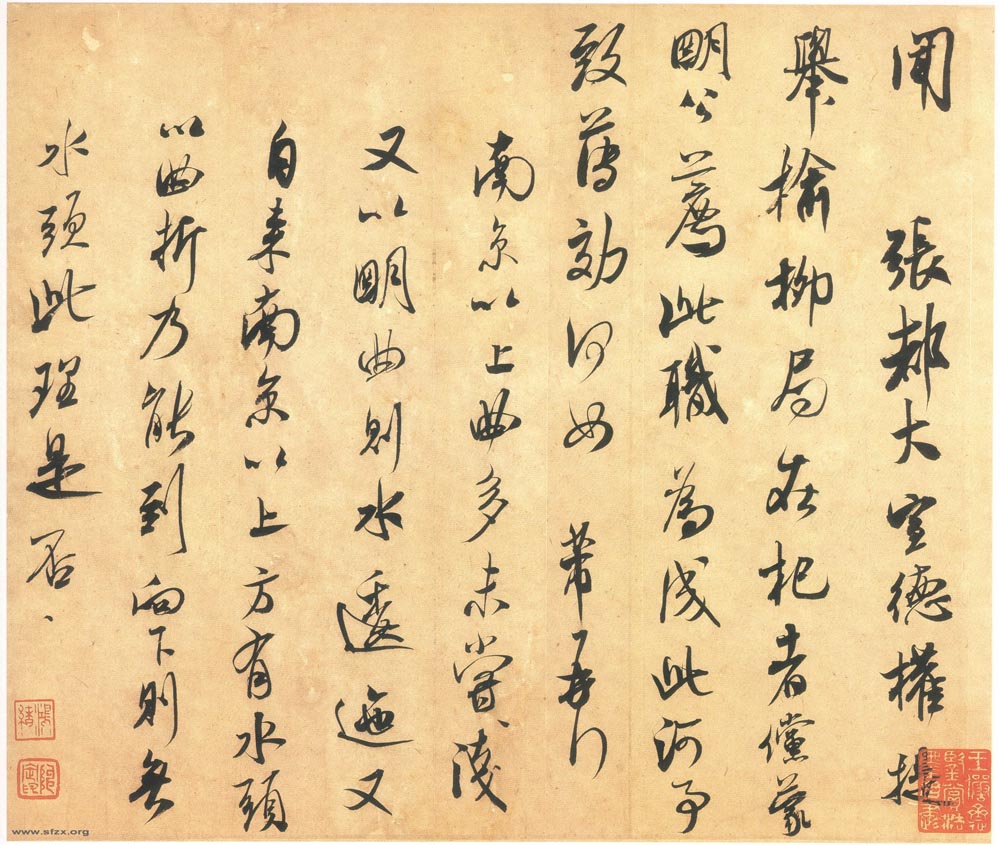 聞　張都大宣德權提
舉榆柳局在杞者儻蒙
明公薦此職為成此河事
致薄効何如　芾再行
南京以上曲多未嘗、淺
又以明曲則水逶迤又
自来南京以上方有水頭
以曲折乃能到向下則無
水頭此理是否、
www.sfzx.org